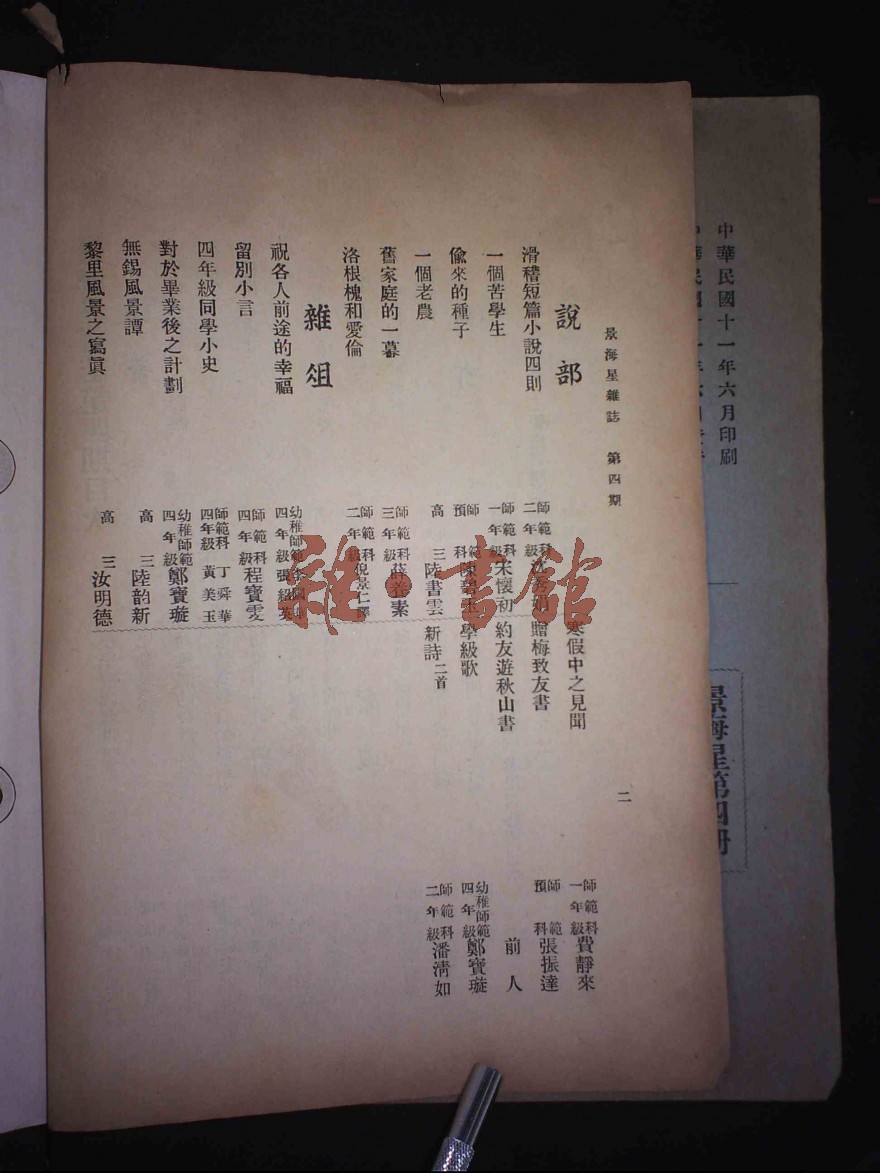 中華民國十一年六月印刷
景海星第四册
景海星雜誌 第四期
二
說部
滑稽短篇小說四則 師範科二年級
一個苦學生 師範科一年級 宋懷初
偸來的種子 師範預科 陳碧玉
一個老農 高三 陸書雲
舊家庭的一幕 師範科三年級 薛養素
洛根槐和愛倫 師範科二年級 倪景仁譯
雜俎
祝各人前途的幸福 幼稚師範四年級 張紹英
留別小言 師範科四年級 程寶雯
四年級同學小史 師範科四年級 丁舜華 黃美玉
對於畢業後之計劃 幼稚師範四年級 鄭寶璇
無錫風景譚 高三 陸韵新
黎里風景之寫眞 高三 汝明德
寒假中之見聞 師範科一年級 費靜來
贈梅致友書 師範預科 張振達
約友遊秋山書 前人
學級歌 幼稚師範四年級 鄭寶璇
新詩二首 師範科二年級 潘淸如
雅·書館